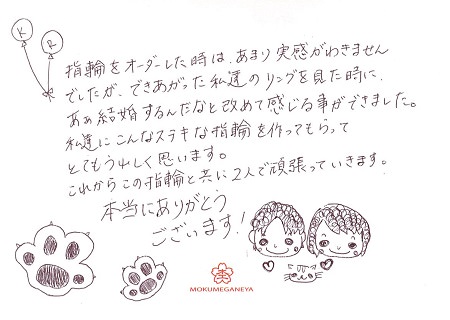 K R
指輪をオーダーした時は、あまり実感がわきません
でしたが、できあがった私達のリングを見た時に、
あぁ結婚するんだなと改めて感じる事ができました。
私達にこんなステキな指輪を作ってもらって
とてもうれしく思います。
これからこの指輪と共に2人で頑張っていきます。
本当にありがとう
ございます!
MOKUMEGANEYA